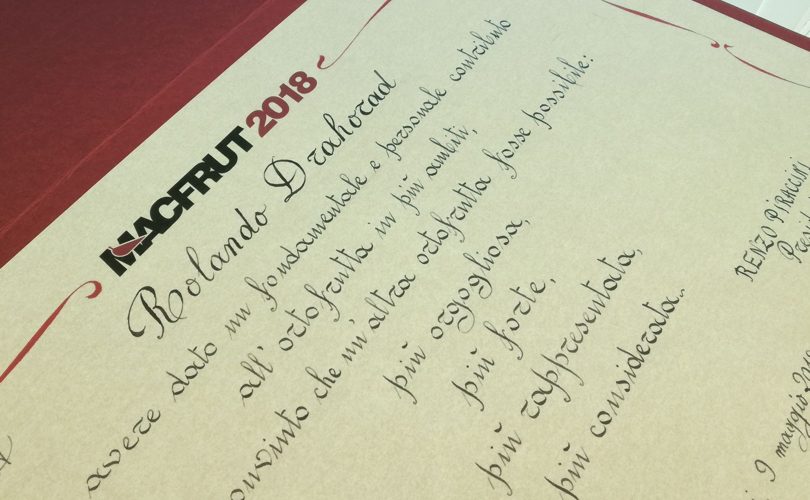 MACFRUT 2018
Rolando Drahorad
avere dato un fondamentale e personale contributo
all'ortofrutta in più ambiti,
onvinto che un'altra ortofrutta fosse possibile:
più orgogliosa,
più forte,
più rappresentata,
più considerata..
RENZO PIRACCINI
Presi
i 9 maggio